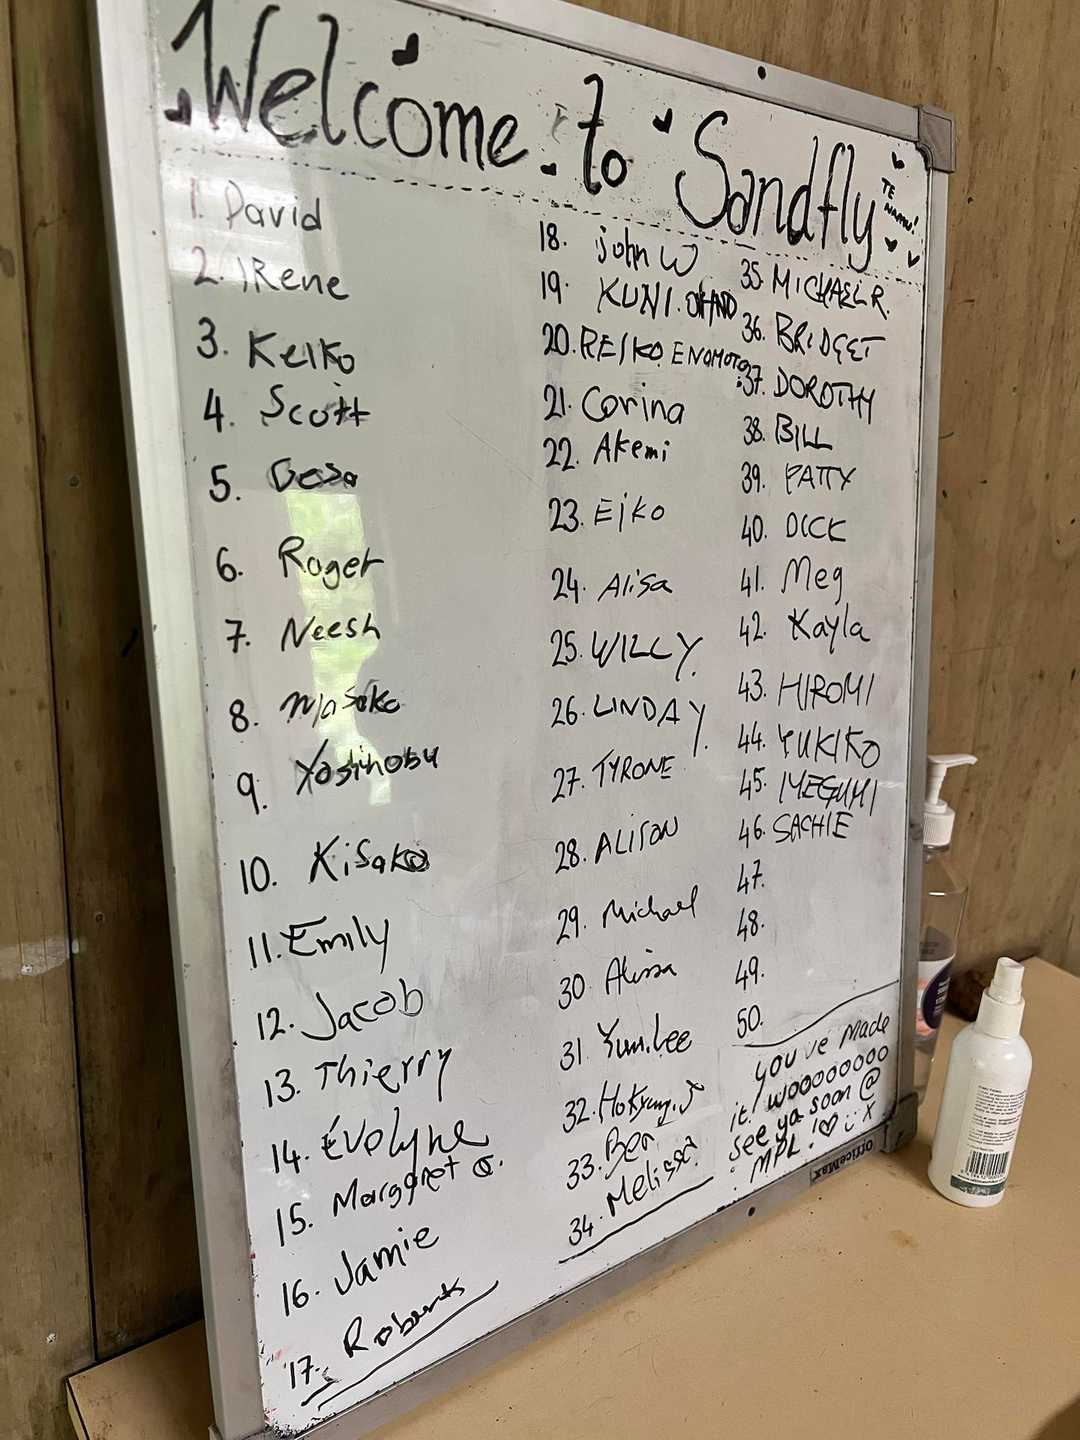 Welcome to Sandfly
TE NAMU!
1. David
2. IRene
3. Keiko
4. Scott
5.
6. Roger
7. Neesh
8. Masako
9. Yoshinobu
10. Kisako
11. Emily
12. Jacob
13. Thierry
14. Évelyne
15. Margaret C.
16. Jamie
17.
18. John W
19. KUNI. OHNO
20. REIKO ENOMOTO
21. Corina
22. Akemi
23. Eiko
24. Alisa
25. WILLY
26. LINDAY
27. TYRONE
28. ALISON
29. Michael
30. Alissa
31. Yumi.Lee
32.
33. Ben
34. Melissa
35. MICHAEL R.
36. BRIDGET
37. DOROTHY
38. BILL
39. PATTY
40. DICK
41. Meg
42. Kayla
43. HIROMI
44. YUKIKO
45. MEGUMI
46. SACHIE
47.
48.
49.
50.
you've Made
it! wooooooooo
see ya soon @
MPL! ♡ :) X
OfficeMax